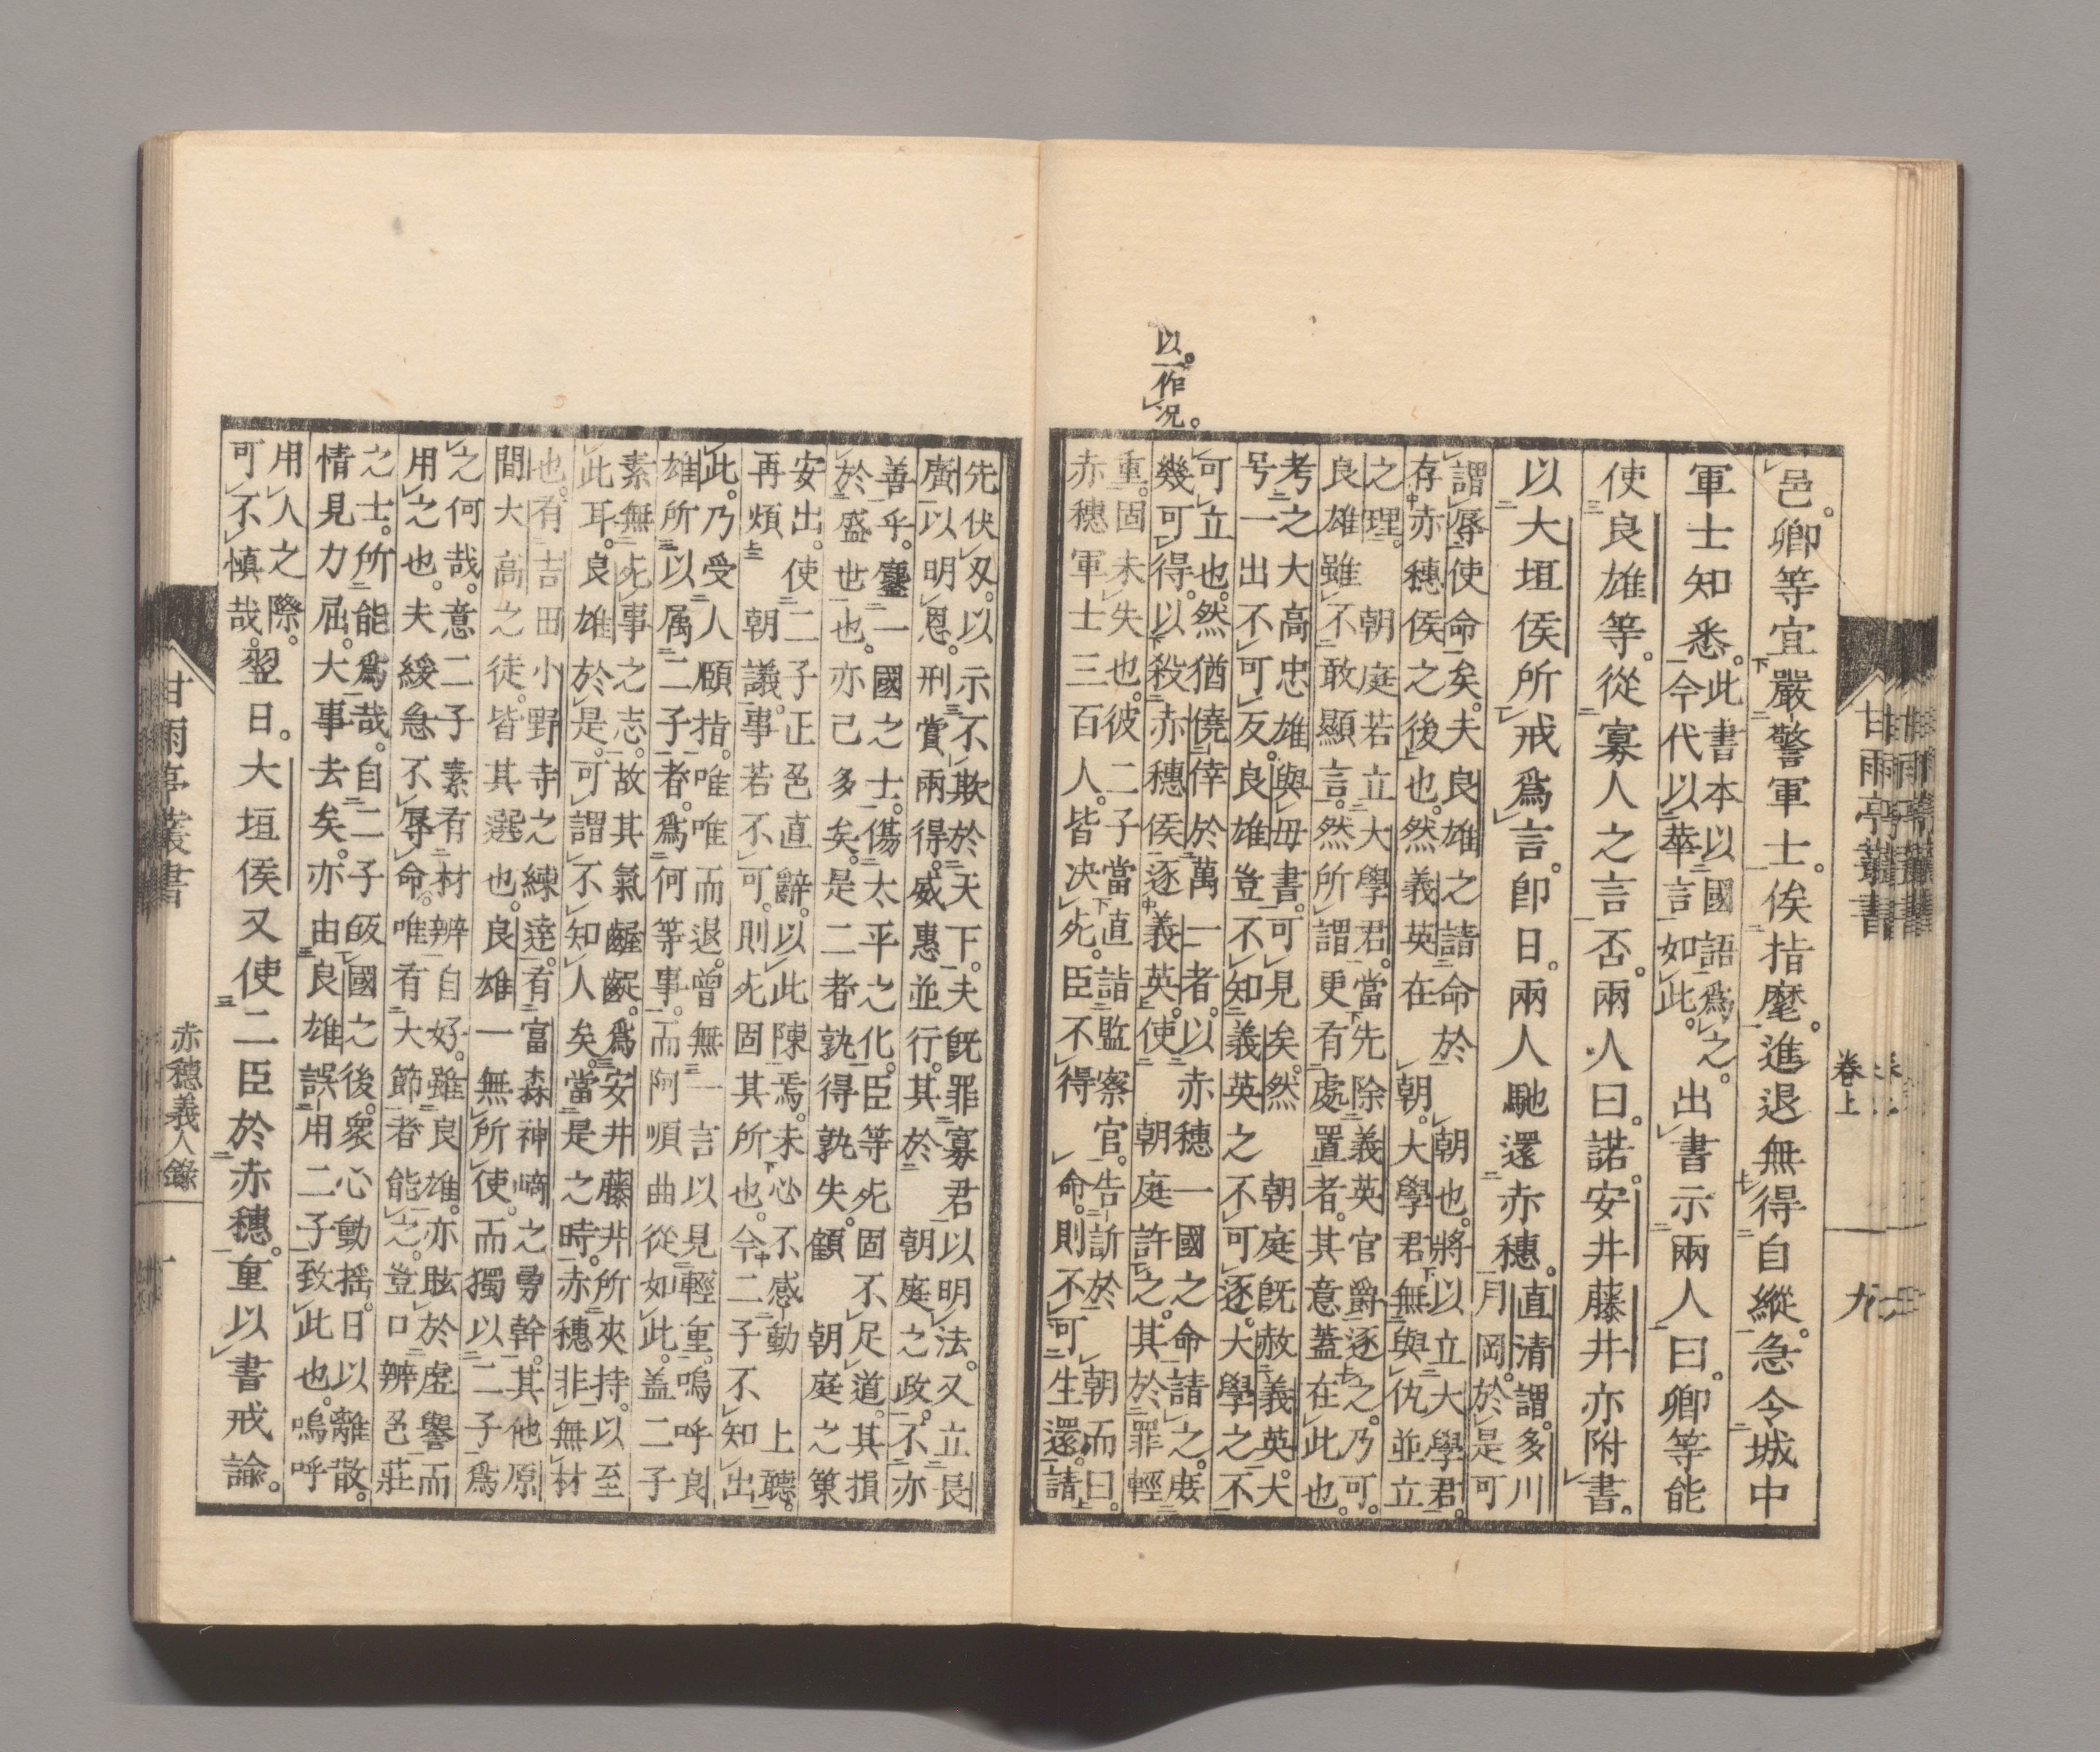 以。一作况。
邑。卿等宜嚴警軍士。俟指麾。進退無得自縱。急令城中
軍士知悉。此書本以國語爲之。今代以華言如此。出書示兩人曰。卿等能
使良雄等。從寡人之言否。兩人曰。諾。安井藤井亦附書。
以大垣侯所戒爲言。卽日。兩人馳還赤穗。直清謂。多川月岡。於是可
謂辱使命矣。夫良雄之請命於 朝也。將以立大學君。
存赤穗侯之後也。然義英在 朝。大學君無與仇並立
之理。 朝庭若立大學君。當先除義英官爵逐之。乃可。
良雄雖不敢顯言。然所謂更有處置者。其意蓋在此也。
考之大高忠雄與母書。可見矣。然 朝庭旣赦義英。大
号一出不可反。良雄豈不知義英之不可逐。大學之不
可立也。然猶僥倖於萬一者。以赤穗一國之命請之。庻
幾可得。以殺赤穗侯逐義英。使 朝庭許之。其於罪輕
重。固未失也。彼二子當直詣監察官。告訴於 朝而曰。
赤穗軍士三百人。皆决死。臣不得 命。則不可生還。請
甘雨亭叢書 卷上 九
先伏刄。以示不欺於天下。夫旣罪寡君以明法。又立長
廣以明恩。刑賞兩得。威惠並行。其於 朝庭之政。不亦
善乎。鏖一國之士。傷太平之化。臣等死固不足道。其損
於盛世也。亦已多矣。是二者孰得孰失。顧 朝庭之策
安出。使二子正色直辭。以此陳焉。未必不感動 上聽。
再煩 朝議。事若不可。則死固其所也。今二子不知出
此。乃受人頤指。唯唯而退。曾無一言以見輕重。嗚呼良
雄所以属二子者。爲何等事。而阿順曲從如此。盖二子
素無死事之志。故其氣齷齪。爲安井藤井所夾持。以至
此耳。良雄於是。可謂不知人矣。當是之時。赤穗非無材
也。有吉田小野寺之練達。有富森神崎之勇幹。其他原
間大高之徒。皆其選也。良雄一無所使。而獨以二子爲
之何哉。意二子素有材辨自好。雖良雄。亦眩於虚譽而
用之也。夫緩急不辱命。唯有大節者能之。豈口辨色莊
之士。所能爲哉。自二子皈國之後。衆心動揺。日以離散。
情見力屈。大事去矣。亦由良雄誤用二子致此也。嗚呼
用人之際。可不慎哉。翌日。大垣侯又使二臣於赤穗。重以書戒諭。
甘雨亭叢書 赤穗義人錄